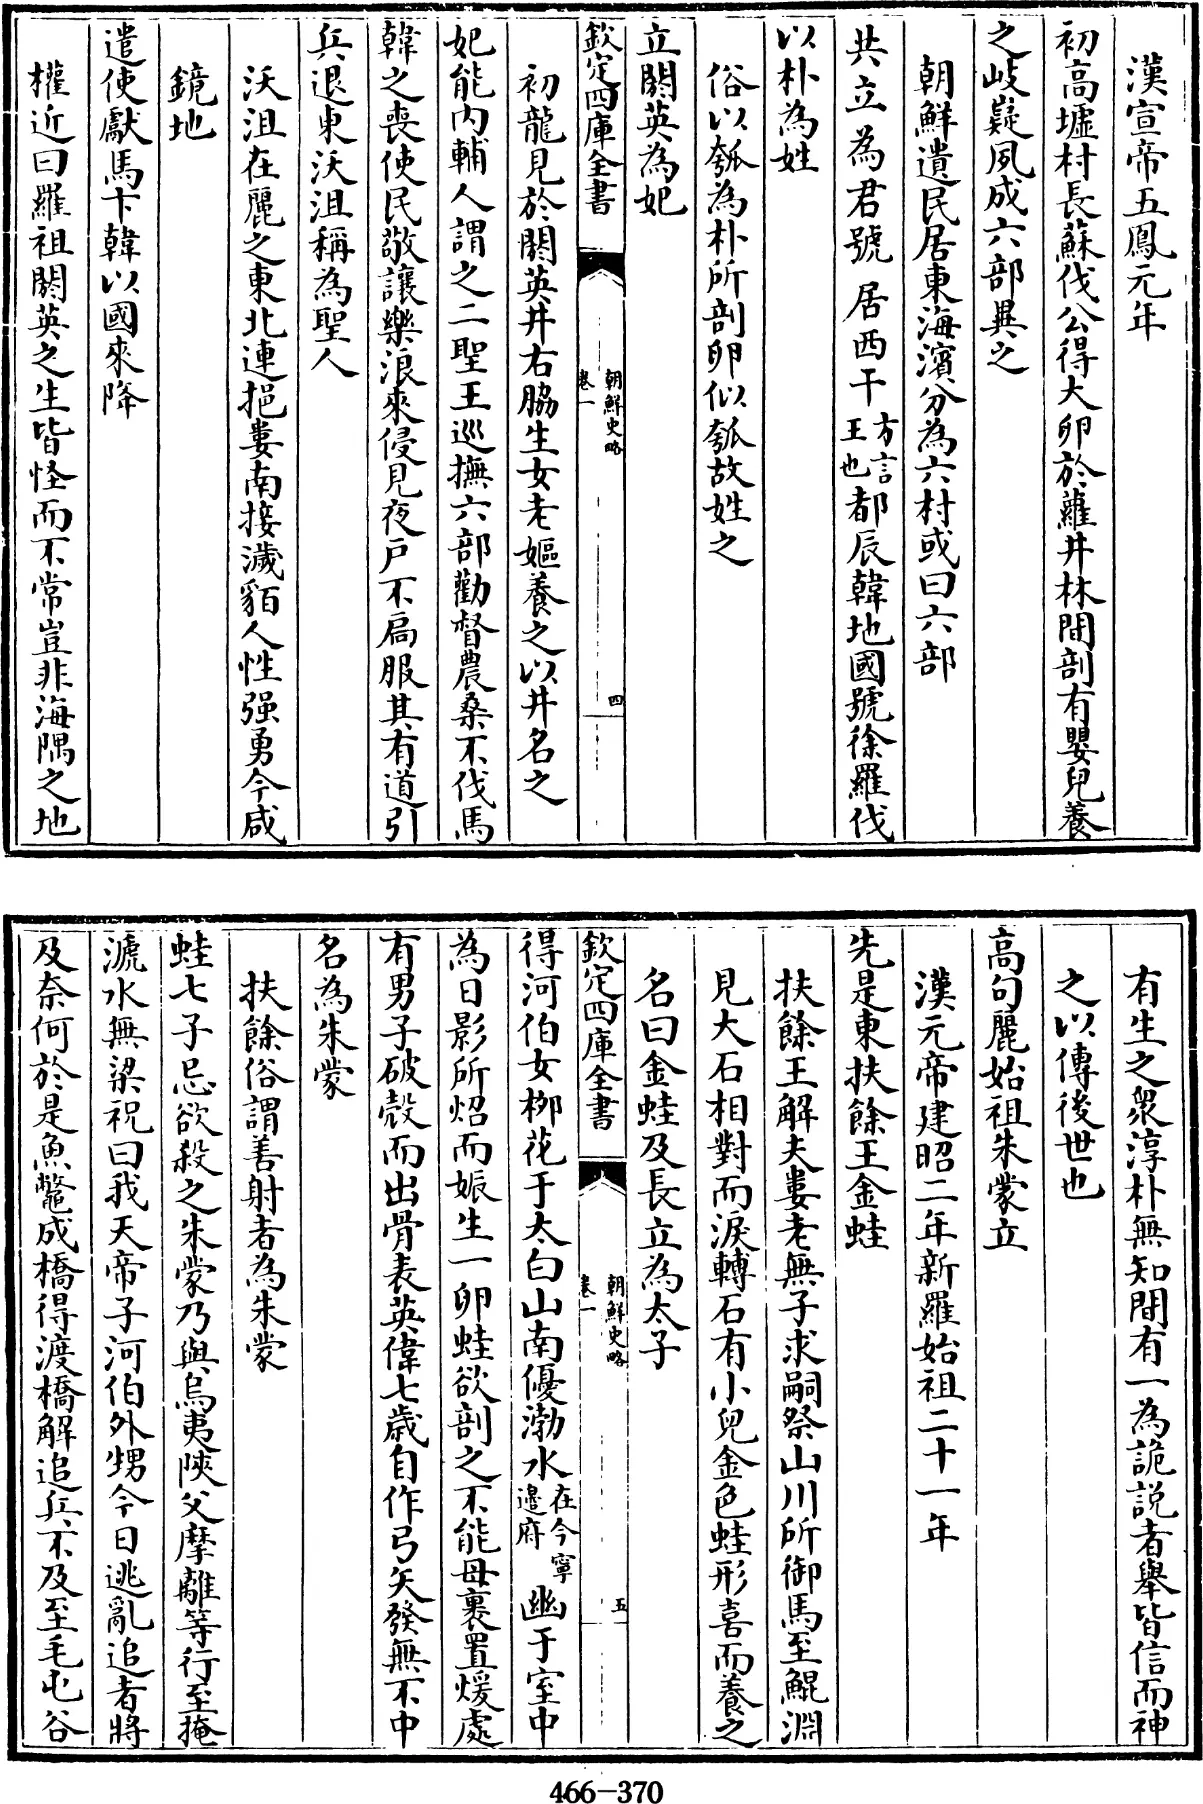 漢宣帝五鳳元年
初高墟村長蘇伐公得大卵於蘿井林間剖有嬰兒養
之岐嶷夙成六部異之
朝鮮遺民居東海濱分為六村或曰六部
共立為君號居西干方言王也都辰韓地國號徐羅伐
以朴為姓
俗以瓠為朴所剖卵似瓠故姓之
立閼英為妃
欽定四庫全書
朝鮮史略
卷一
四
初龍見於閼英井右脇生女老嫗養之以井名之
妃能內輔人謂之二聖王巡撫六部勸督農桑不伐馬
韓之喪使民敬讓樂浪來侵見夜戶不扃服其有道引
兵退東沃沮稱為聖人
沃沮在麗之東北連挹婁南接濊貊人性强勇今咸
鏡地
遣使獻馬卞韓以國來降
權近曰羅祖閼英之生皆怪而不常豈非海隅之地
有生之衆淳朴無知間有一為詭説者舉皆信而神
之以傳後世也
高句麗始祖朱蒙立
漢元帝建昭二年新羅始祖二十一年
先是東扶餘王金蛙
扶餘王解夫婁老無子求嗣祭山川所御馬至鯤淵
見大石相對而淚轉石有小兒金色蛙形喜而養之
名曰金蛙及長立為太子
欽定四庫全書
朝鮮史略
卷一
五
得河伯女栁花于太白山南優渤水在今寧邉府幽于室中
為日影所炤而娠生一卵蛙欲剖之不能母裹置煖處
有男子破殼而出骨表英偉七歳自作弓矢發無不中
名為朱蒙
扶餘俗謂善射者為朱蒙
蛙七子忌欲殺之朱蒙乃與烏夷陜父摩離等行至掩
淲水無梁祝曰我天帝子河伯外甥今日逃亂追者將
及奈何於是魚鼈成橋得渡橋解追兵不及至毛屯谷
466-370